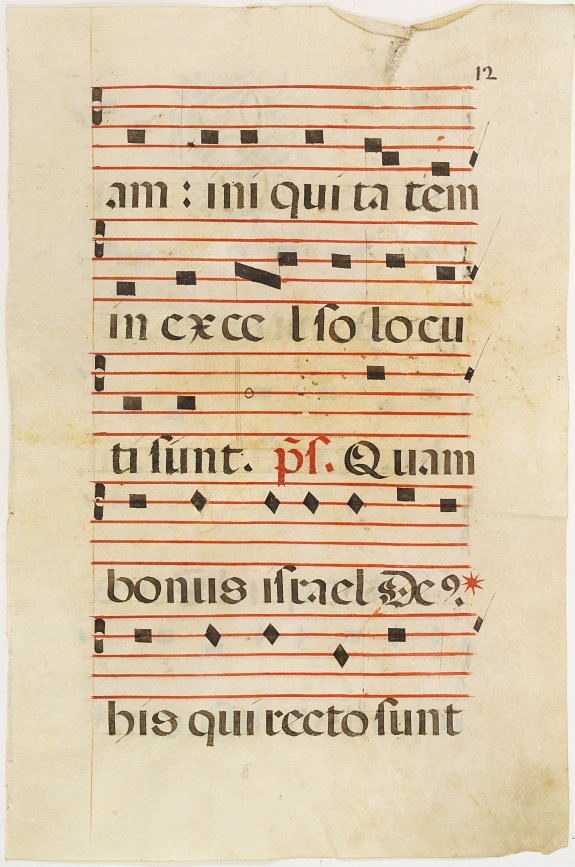 12
am : ini qui ta tem
in exce l so locu
ti sunt. ps̃. Quam
bonus israel De9*
his qui recto sunt